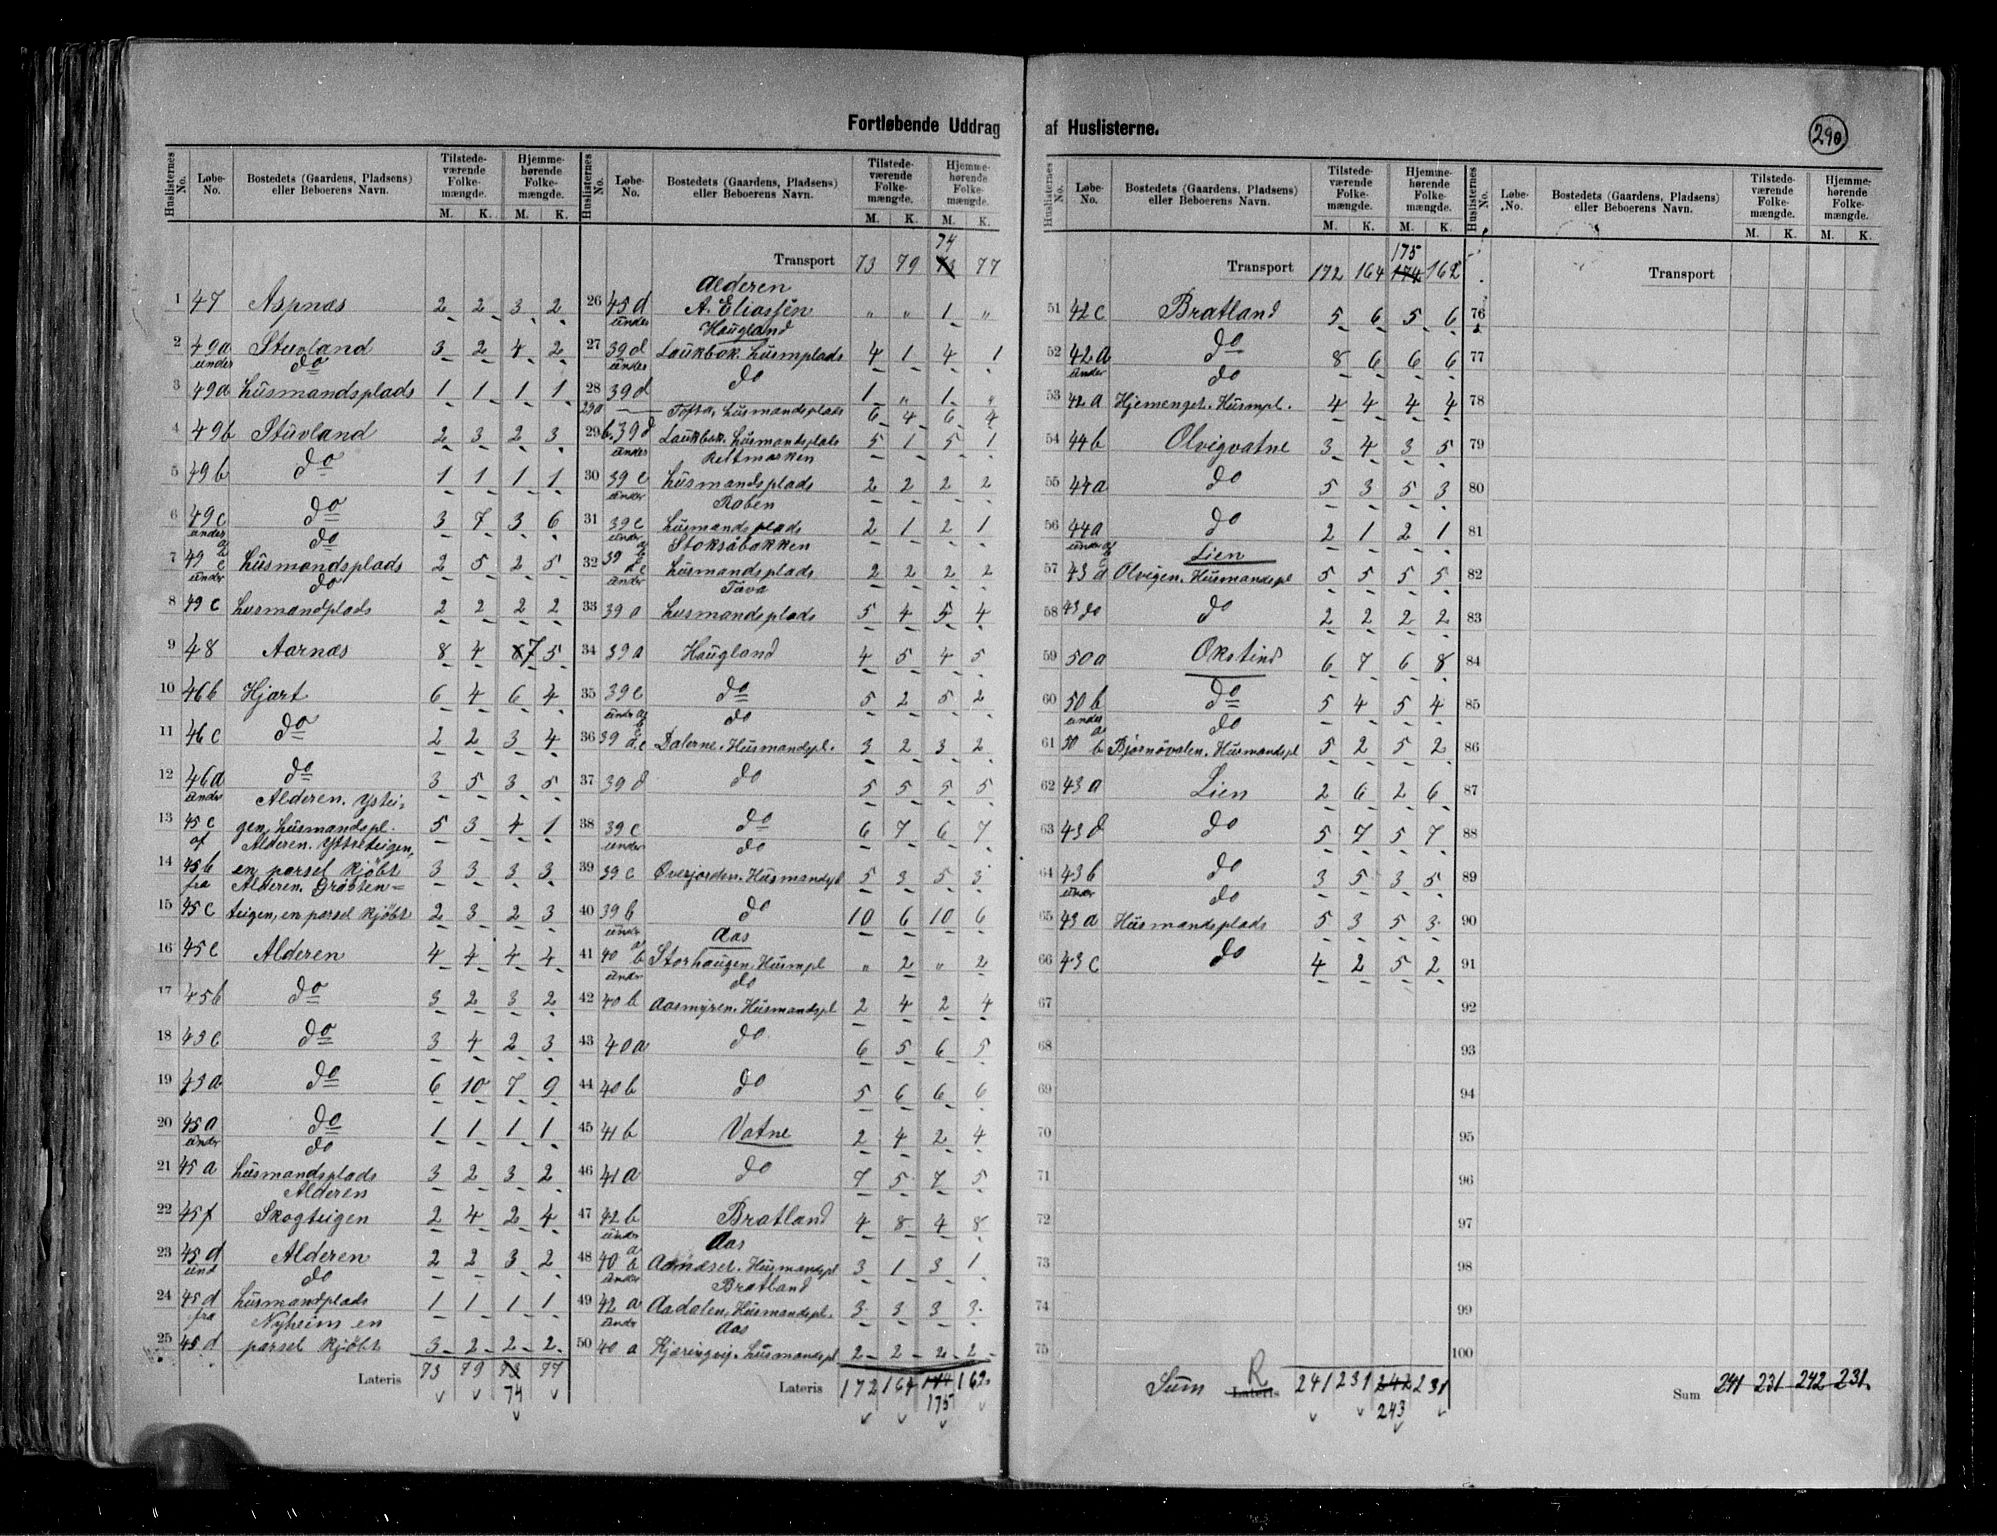 Fortløbende Uddrag af Huslisterne.
290
Huslisternes No. Løbe-No. Bostedets (Gaardens, Pladsens) eller Beboerens Navn. Tilstede-værende Folke-mængde. M. K. Hjemme-hørende Folke-mængde. M. K.
1 47 Aspnæs 2 2 3 2
2 49a Stuvland 3 2 4 2
under do
3 49a Husmandsplads 1 1 1 1
4 49b Stuvland 2 3 2 3
5 49b do 1 1 1 1
6 49c do 3 7 3 6
under do
7 49 a b c Husmandsplads 2 5 2 5
under do
8 49c Husmandplads 2 2 2 2
9 48 Aarnæs 8 4 8 7 5
10 46b Hjart 6 4 6 4
11 46c do 2 2 3 4
12 46a do 3 5 3 5
under Alderen. Ystei-
13 45c gen, Husmandspl. 5 3 4 1
af Alderen. Ytreteigen,
14 45b en parsel kjøbt 3 3 3 3
fra Alderen. Grøsten=
15 45c teigen, en parsel kjøbt 2 3 2 3
16 45e Alderen 4 4 4 4
17 45b do 3 2 3 2
18 43c do 3 4 2 3
19 43a do 6 10 7 9
20 45a do 1 1 1 1
under do
21 45a Husmandsplads 3 2 3 2
Alderen
22 45f Skogteigen 2 4 2 4
23 45d Alderen 2 2 3 2
und do
24 45d Husmandplads 1 1 1 1
fra Nyheim en
25 45d parsel kjøbt 3 2 2 2
Lateris 73 79 73 77
74
Huslisternes No. Løbe-No. Bostedets (Gaardens, Pladsens) eller Beboerens Navn. Tilstede-værende Folke-mængde. M. K. Hjemme-hørende Folke-mængde. M. K.
74
Transport 73 79 73 77
Alderen
26 45d A. Eliassen " " 1 "
under Haugland
27 39d Laukbak. Husmplads 4 1 4 1
under do
28 39d 1 " 1 "
29a Tofta, Husmandsplads 6 4 6 4
29 b. 39d Laukbak. Husmandsplads 5 1 5 1
under Reitmarken
30 39c Husmandsplads 2 2 2 2
under Raben
31 39c Husmandsplads 2 1 2 1
under Stoksåbakken
32 39 a b d c Husmandsplads 2 2 2 2
under Tuva
33 39a Husmandsplads 5 4 5 4
34 39a Haugland 4 5 4 5
35 39c do 5 2 5 2
under do
36 39 a b d c Dalerne. Husmandspl. 3 2 3 2
37 39d do 5 5 5 5
38 39c do 6 7 6 7
under do
39 39c Øverjorden. Husmandspl 5 3 5 3
40 39b do 10 6 10 6
under Aas
41 40 a b Storhaugen, Husmpl " 2 " 2
under do
42 40b Aasmyren. Husmandspl 2 4 2 4
43 40a do 6 5 6 5
44 40b do 5 6 6 6
45 41b Vatne 2 4 2 4
46 41a do 7 5 7 5
47 42b Bratland 4 8 4 8
under Aas
48 40 a b Husmandspl 3 1 3 1
under Bratland
49 42a Aadalen, Husmandspl. 3 3 3 3
under Aas
50 40a Kjæringvig. Husmandspl 2 2 2 2
Lateris 172 164 174 162
175
Huslisternes No. Løbe-No. Bostedets (Gaardens, Pladsens) eller Beboerens Navn. Tilstede-værende Folke-mængde. M. K. Hjemme-hørende Folke-mængde. M. K.
175
Transport 172 164 174 162
51 42c Bratland 5 6 5 6
52 42a do 8 6 6 6
under do
53 42a Hjemenget. Husmpl. 4 4 4 4
54 44b Olvigvatne 3 4 3 5
55 44a do 5 3 5 3
56 44a do 2 1 2 1
under Lien
57 43 a b d Olvigen. Husmandspl 5 5 5 5
58 43 do do 2 2 2 2
59 50a Okstind 6 7 6 8
60 50b do 5 4 5 4
under do
61 50 a b Bjørnøvalen. Husmandspl 5 2 5 2
62 43a Lien 2 6 2 6
63 43d do 5 7 5 7
64 43b do 3 5 3 5
under do
65 43a Husmandsplads 5 3 5 3
66 43c do 4 2 5 2
67
68
69
70
71
72
73
74
75
Sum R Lateris 241 231 242 231
243
Huslisternes No. Løbe-No. Bostedets (Gaardens, Pladsens) eller Beboerens Navn. Tilstede-værende Folke-mængde. M. K. Hjemme-hørende Folke-mængde. M. K.
Transport
76
77
78
79
80
81
82
83
84
85
86
87
88
89
90
91
92
93
94
95
96
97
98
99
100
Sum 241 231 242 231